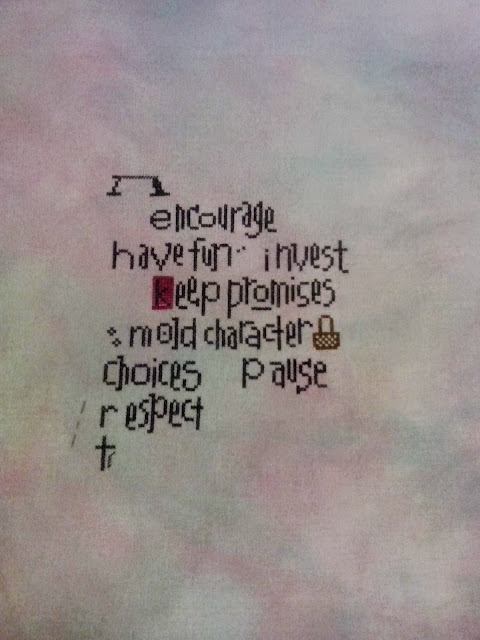 encourage
have fun invest
keep promises
mold character
choices pause
respect
tr